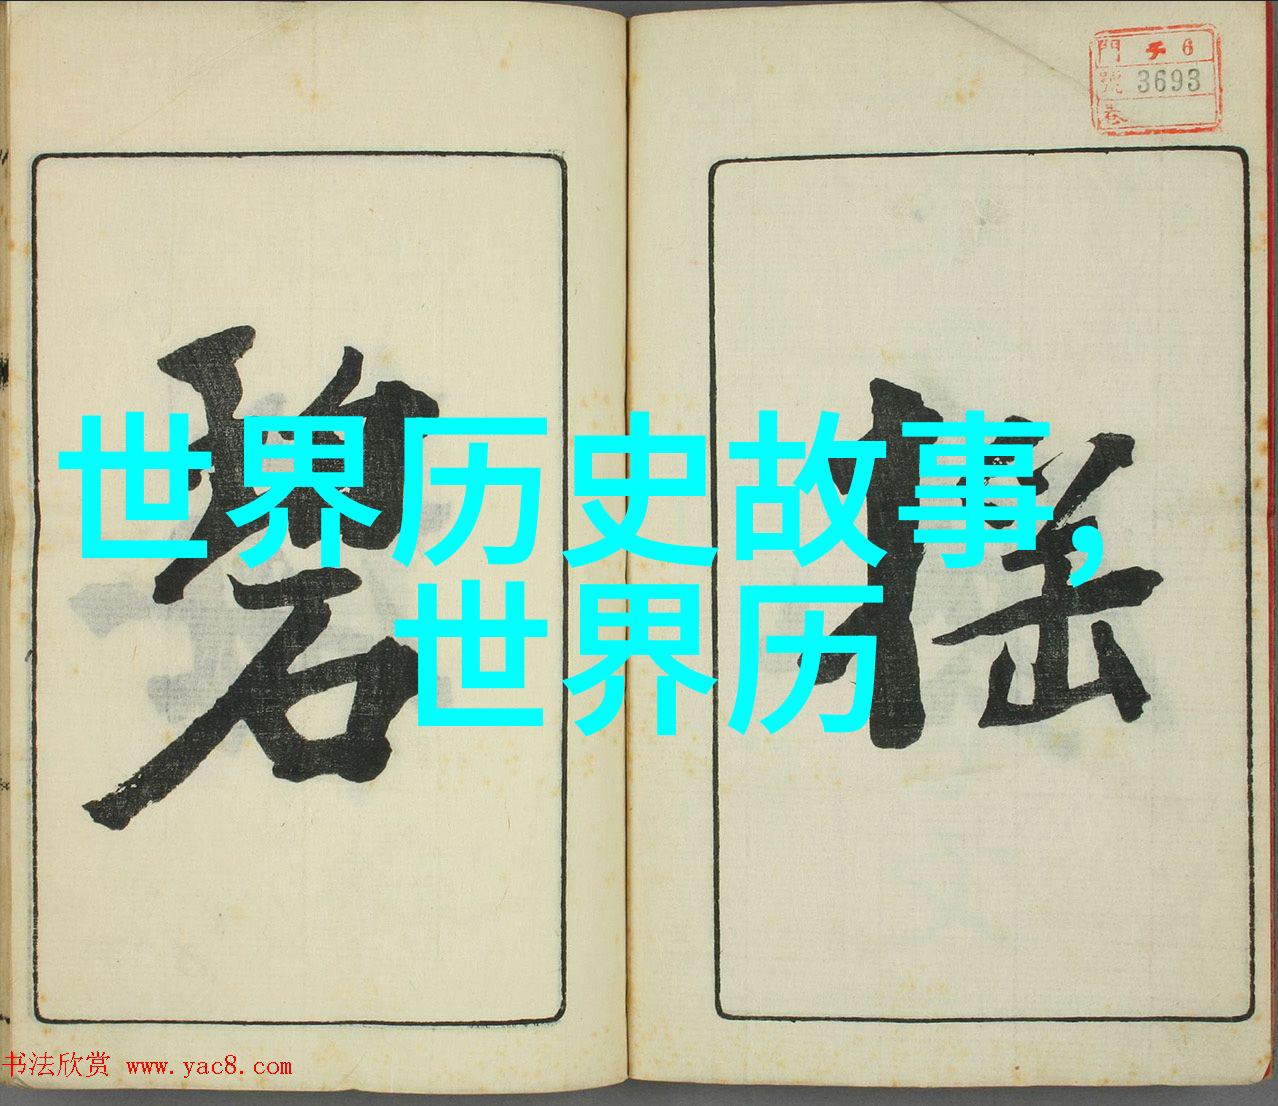 門 子 6
號 3693
卷
搖
碧
世界历史故事,
世界历
书法欣赏 www.yac8.com